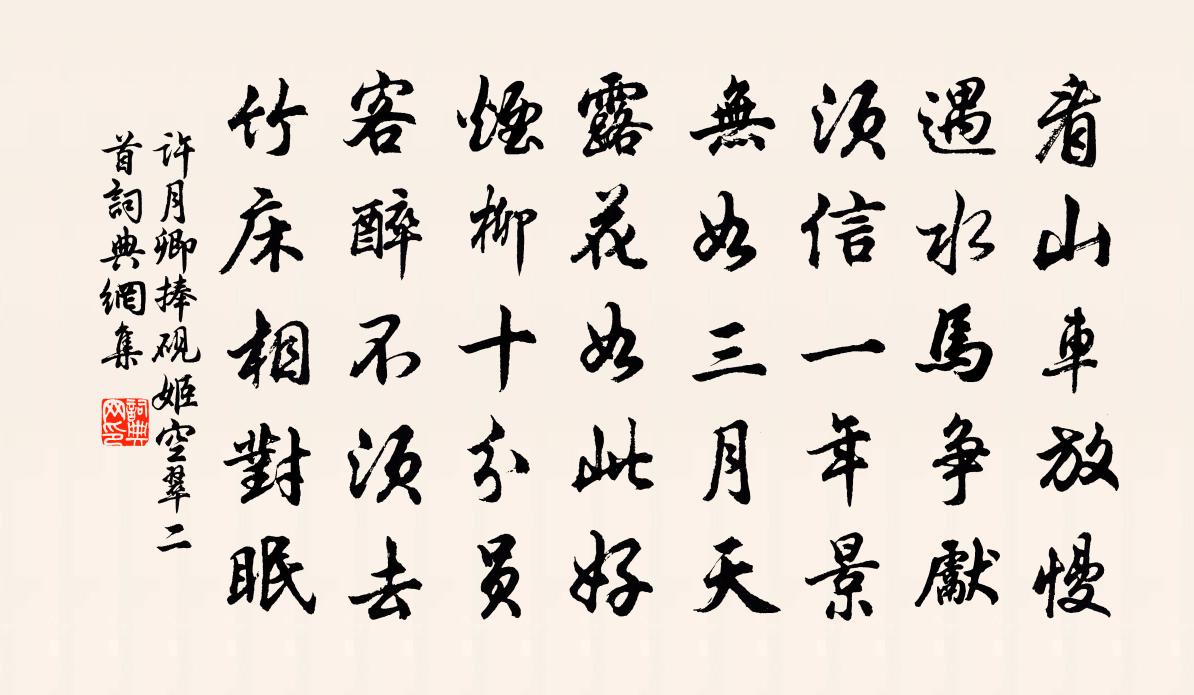 看山車放慢
遇水馬争獻
須信一年景
無如三月天
露花如此好
煙柳十分員
客醉不須去
竹床相對眠
許月卿捧硯姬空翠二
首詞典網集
詞典
网印